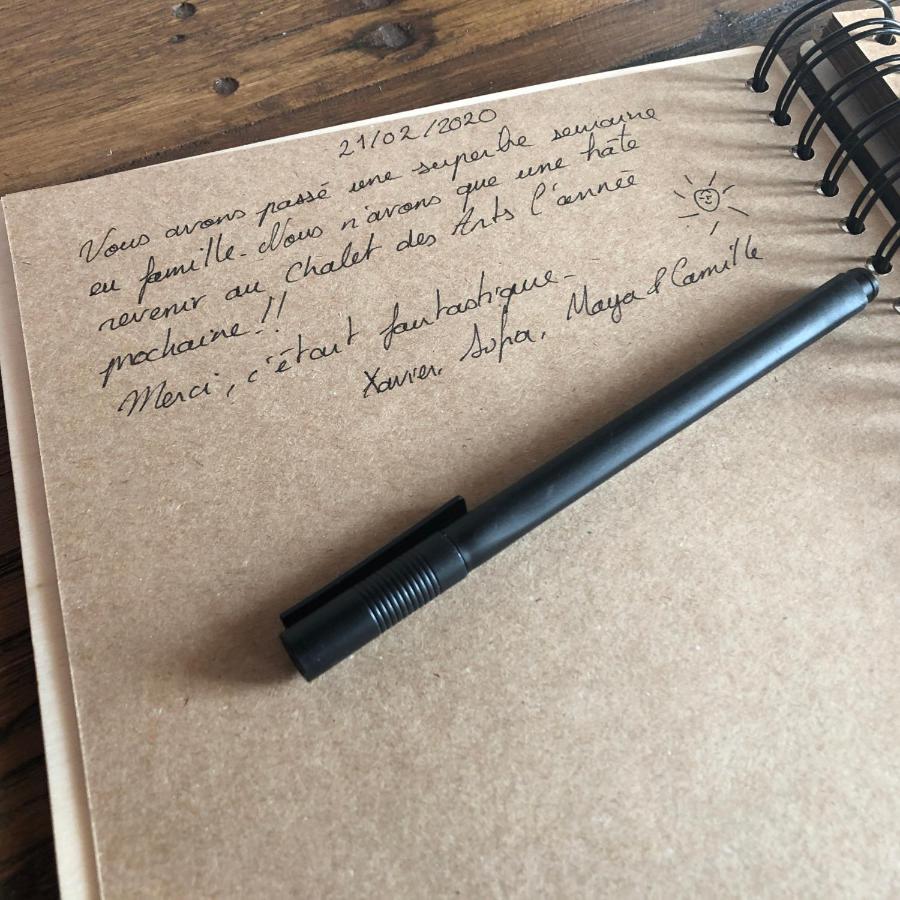 21/02/2020
Nous avons passé une superbe semaine
en famille. Nous n'avons que une hâte
revenir au Chalet des Arts l'année
prochaine!!
Merci, c'était fantastique.
Xavier, Maya & Camille